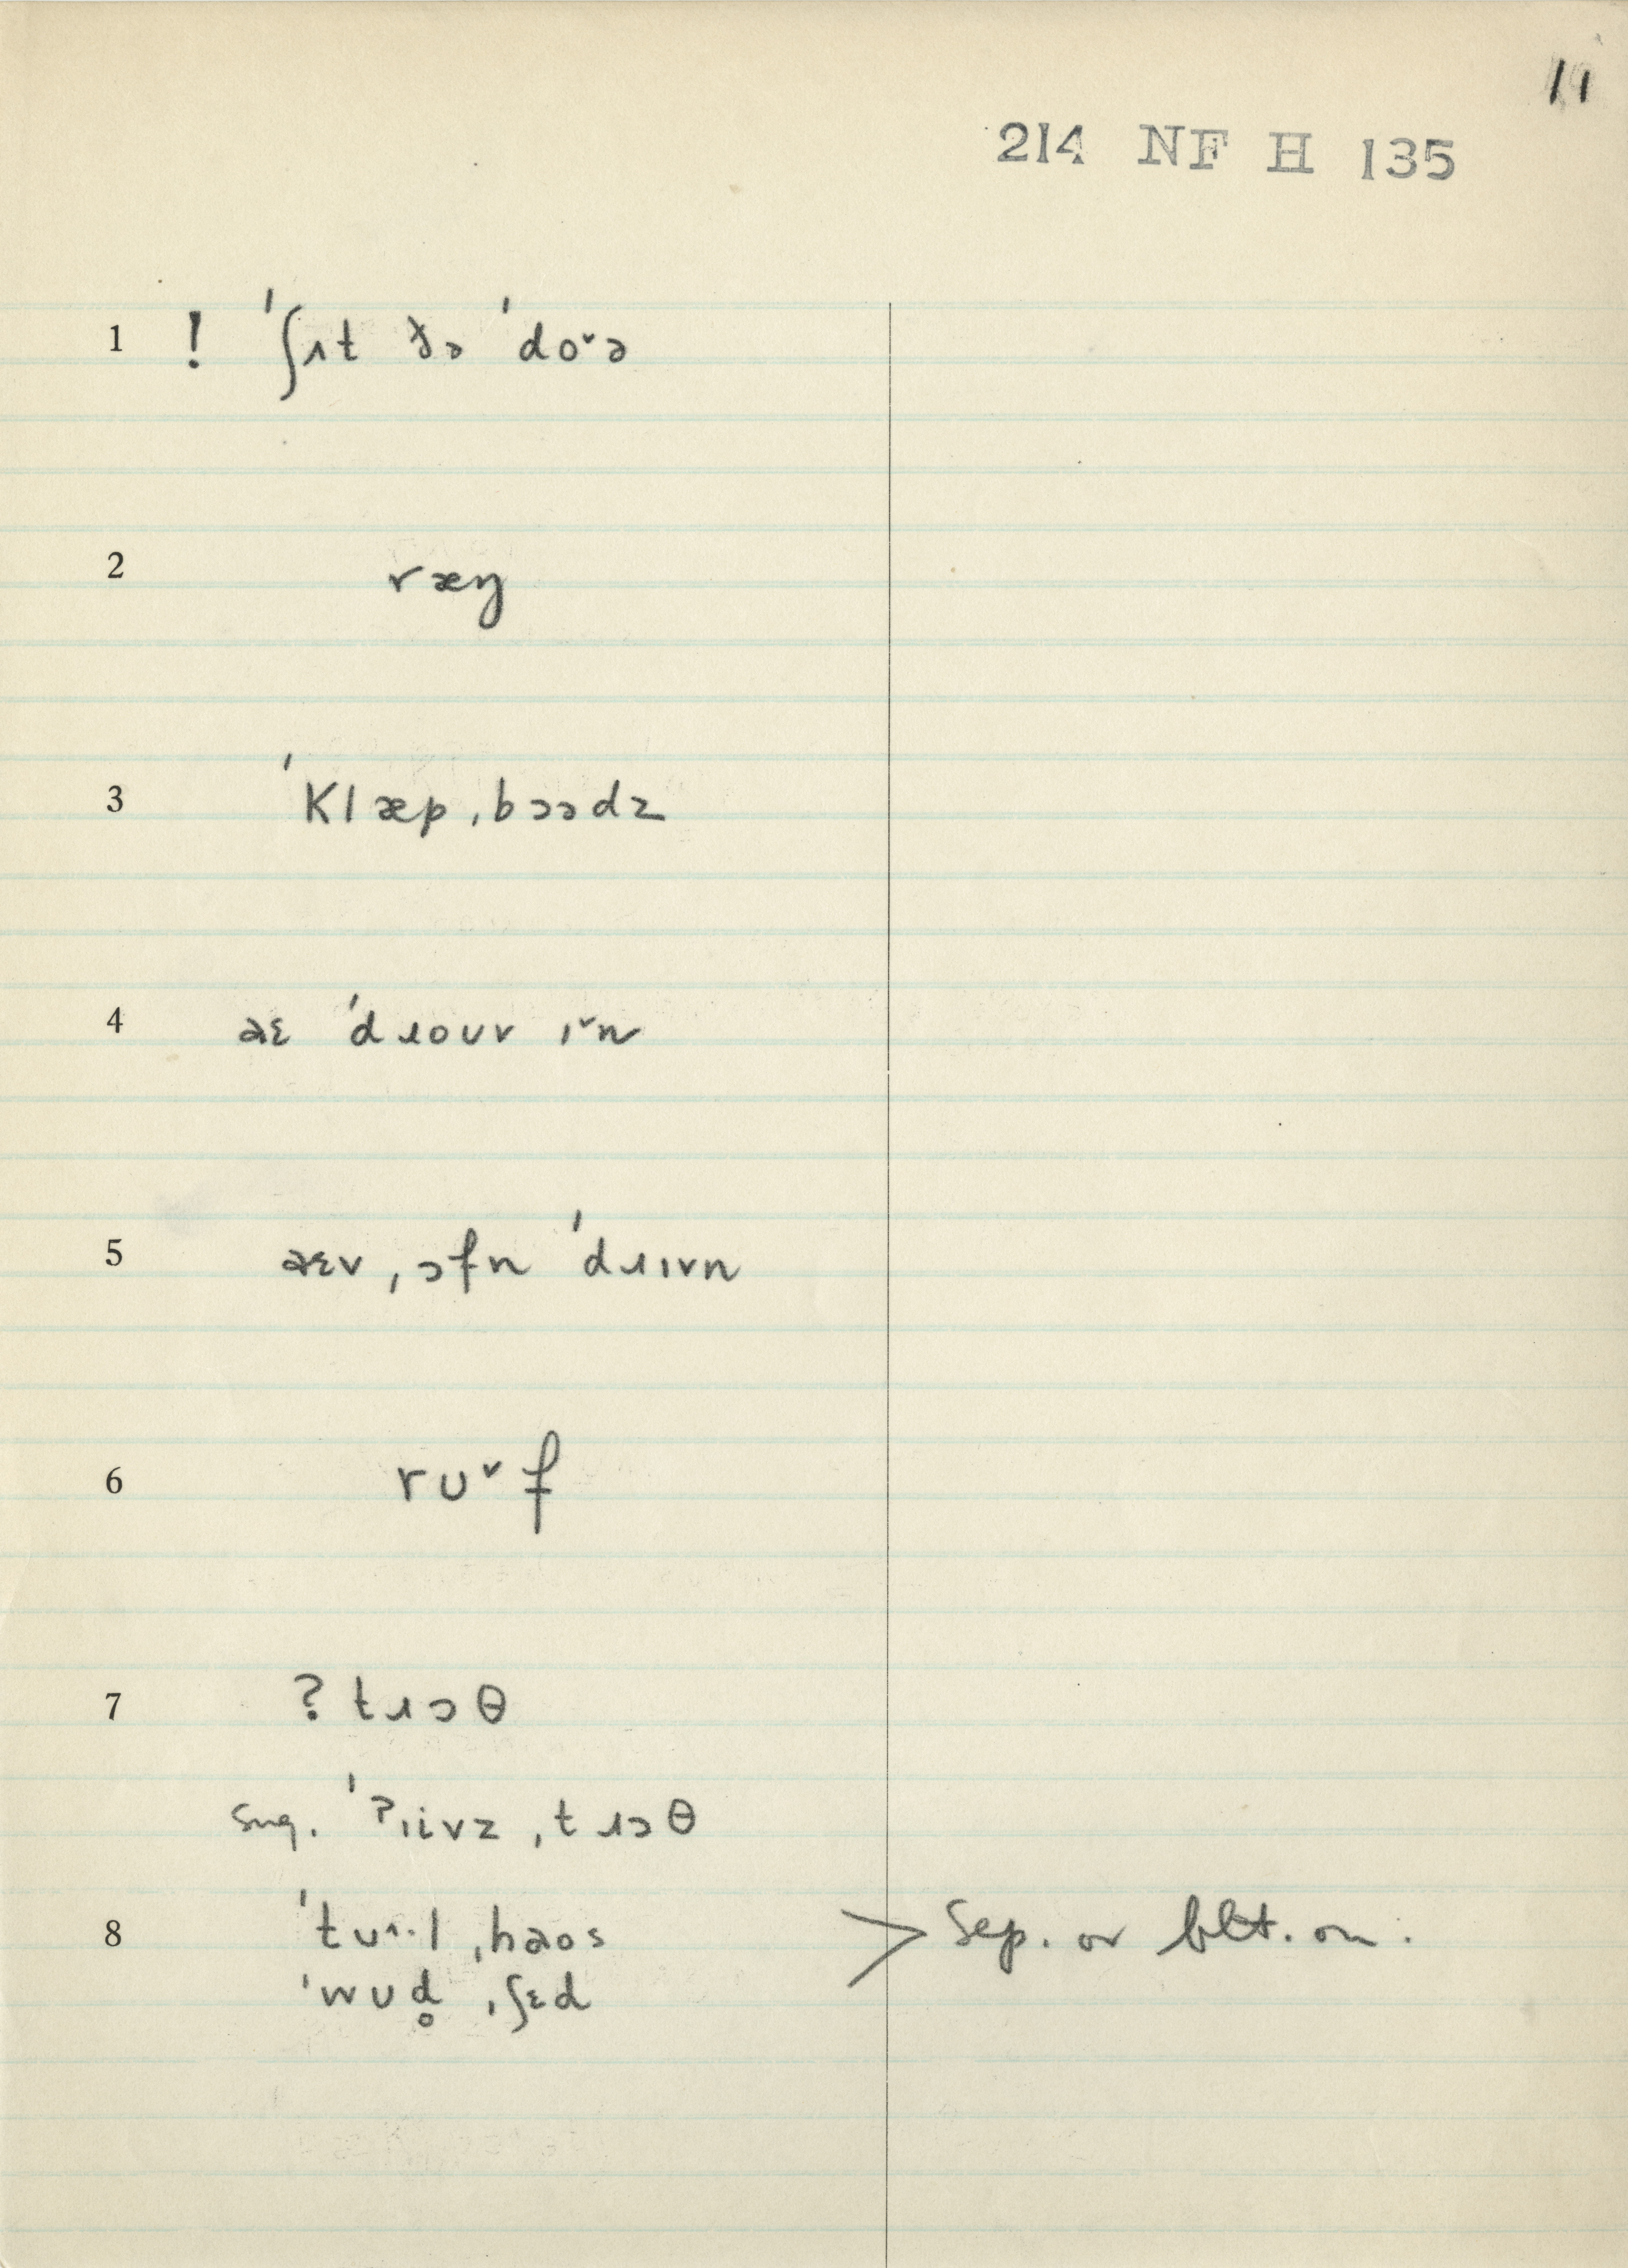 11
214 NF H 135
1 ! ˈʃɪt ðə ˈdo˅ə
2 ræŋ
3 ˈklæp ˌbɔədz
4 aɛ ˈdɹoʊv ɪ˅n
5 aɛv ˌɔfn ˈdɹɪvn
6 rʊ˅f
7 ? tɹɔθ
sug. ˈʔɪivz ˌtɹɔθ
8 ˈtu˄·l ˌhaos
ˈwʊd̥ ˌʃɛd
> Sep. or blt. on.